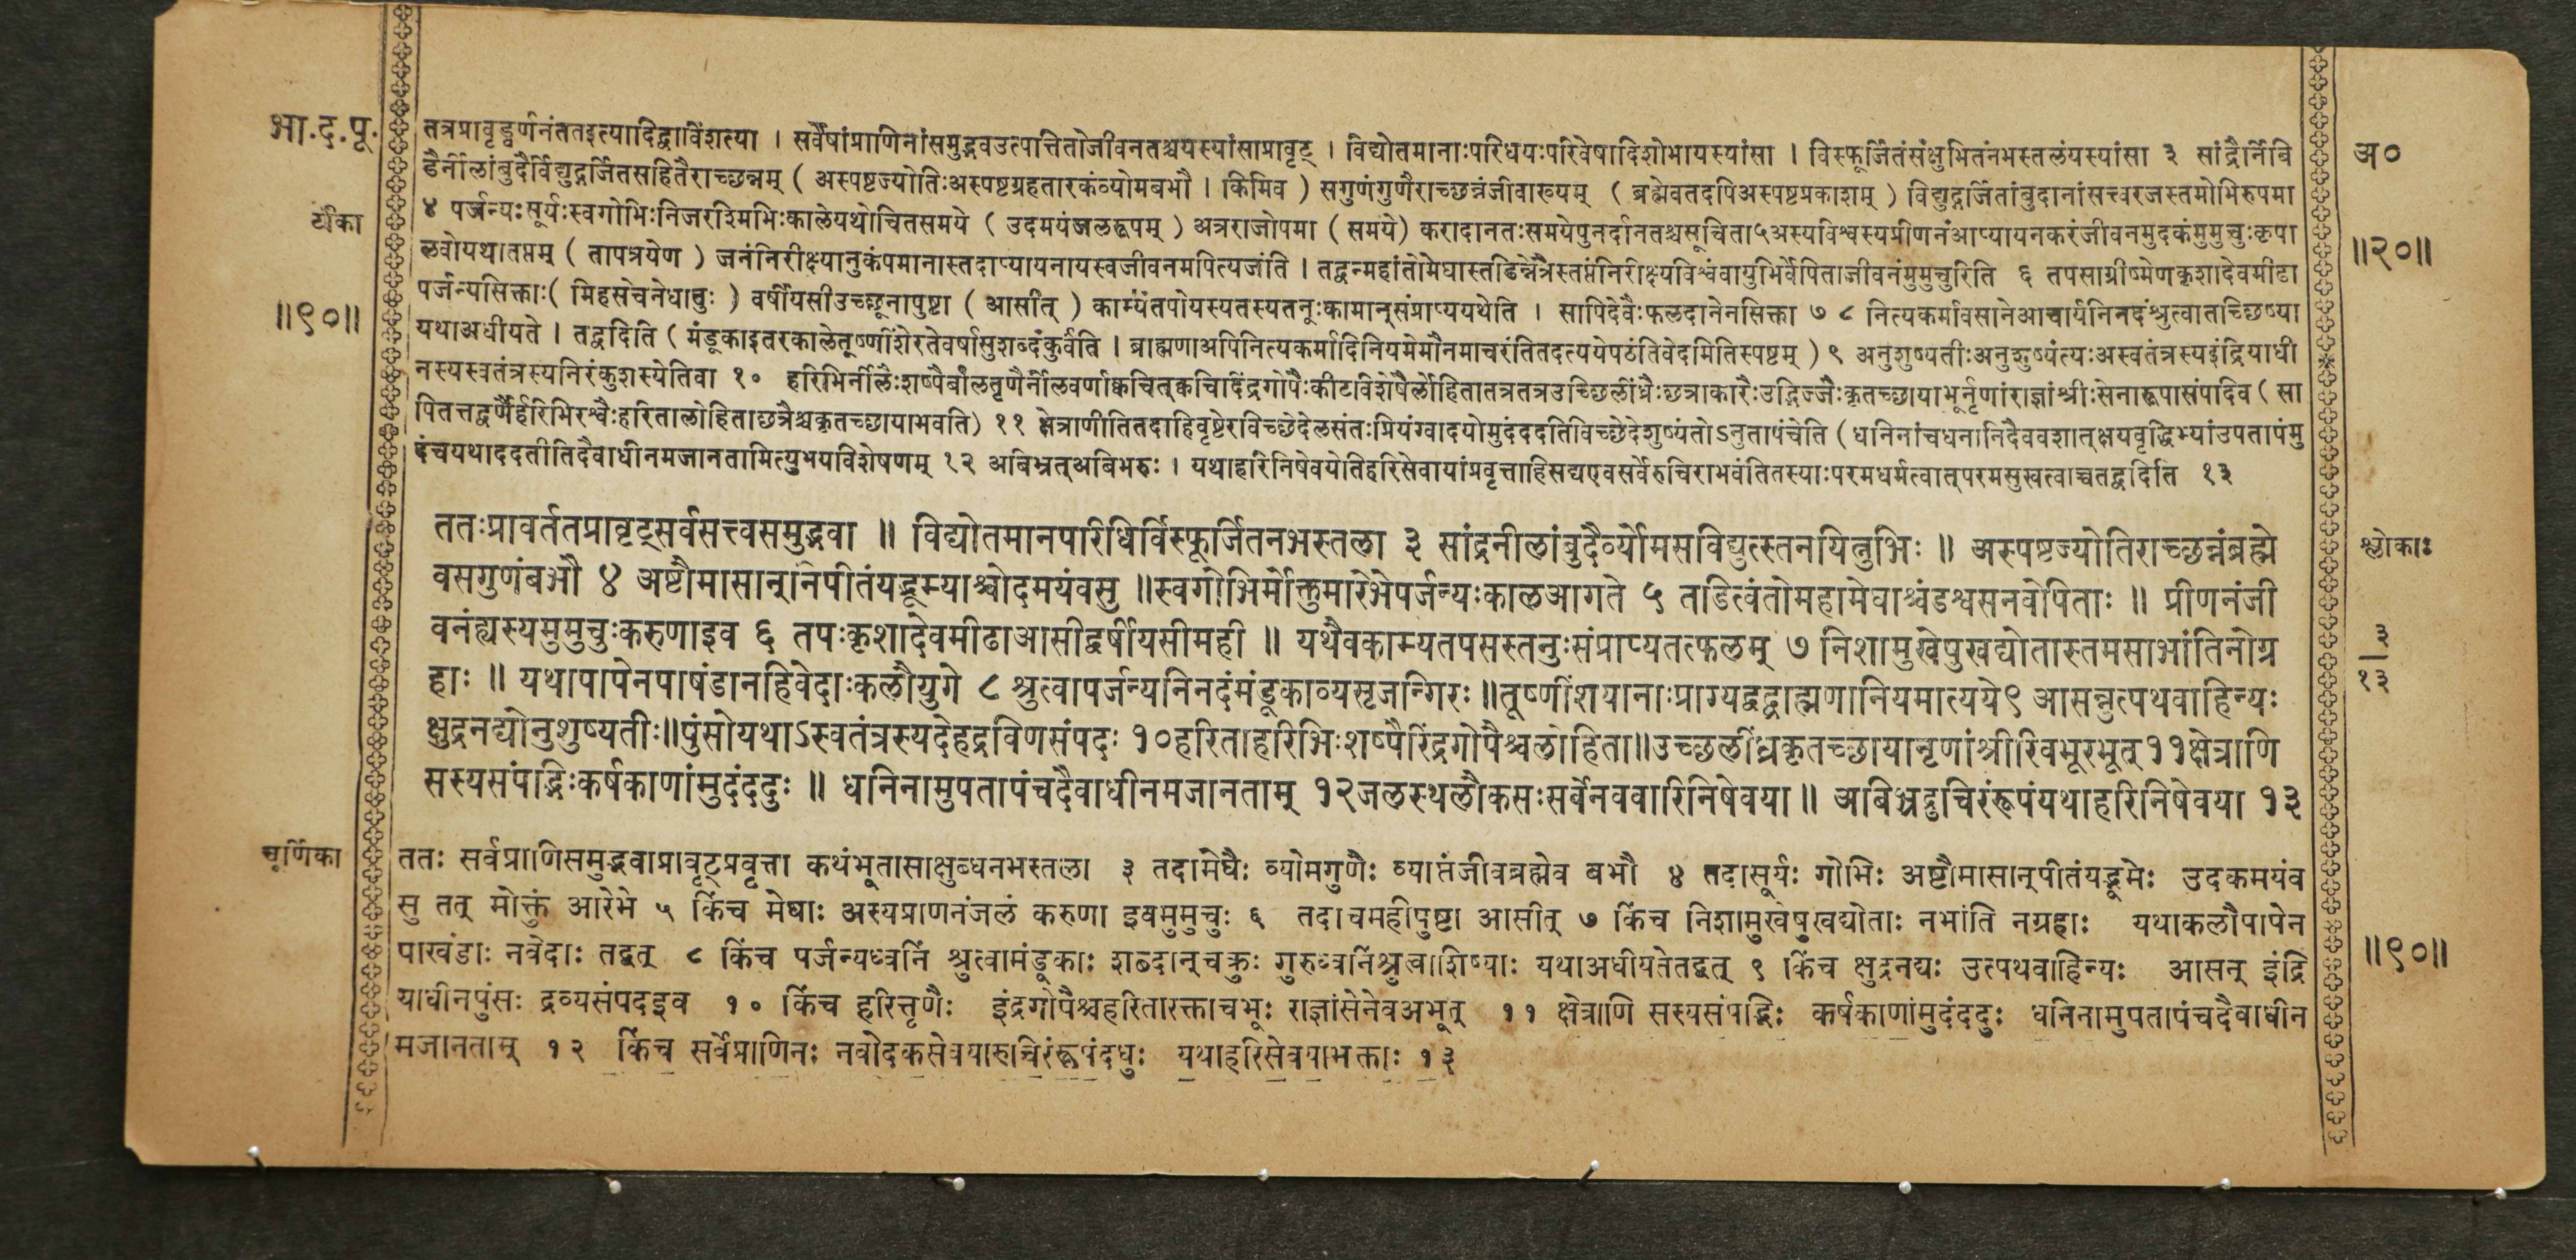 भा.द.पू.
टीका
॥९०॥
अ०
॥२०॥
तत्रप्रावृड्वर्णनंततइत्यादिद्वाविंशत्या । सर्वेषांप्राणिनांसमुद्भवउत्पत्तितोजीवनतश्चयस्यांसाप्रावृट् । विद्योतमानाःपरिधयःपरिवेषादिशोभायस्यांसा । विस्फूर्जितंसंक्षुभितंनभस्तलंयस्यांसा ३ सांद्रैर्निबि
डैर्नीलांबुदैर्विद्युद्गर्जितसहितैराच्छन्नम् ( अस्पष्टज्योतिःअस्पष्टग्रहतारकंव्योमबभौ । किमिव ) सगुणंगुणैराच्छन्नंजीवाख्यम् ( ब्रह्मेवतदपिअस्पष्टप्रकाशम् ) विद्युद्गर्जितांबुदानांसत्त्वरजस्तमोभिरुपमा
४ पर्जन्यःसूर्यःस्वगोभिःनिजरश्मिभिःकालेयथोचितसमये ( उदमयंजलरूपम् ) अत्रराजोपमा ( समये) करादानतःसमयेपुनर्दानतश्चसूचिता५अस्यविश्वस्यप्रीणनंआप्यायनकरंजीवनमुदकंमुमुचुःकृपा
लवोयथातप्तम् ( तापत्रयेण ) जनंनिरीक्ष्यानुकंपमानास्तदाप्यायनायस्वजीवनमपित्यजंति । तद्वन्महांतोमेघास्तडिन्नेत्रैस्तप्तंनिरीक्ष्यविश्वंवायुभिर्वेपिताजीवनंमुमुचुरिति ६ तपसाग्रीष्मेणकृशादेवमीढा
पर्जन्यसिक्ताः( मिहसेचनेधातुः ) वर्षीयसीउच्छूनापुष्टा ( आसीत् ) काम्यंतपोयस्यतस्यतनुःकामान्संप्राप्ययथेति । सापिदेवैःफलदानेनसिक्ता ७ ८ नित्यकर्मावसानेआचार्यनिनदंश्रुत्वातच्छिष्या
यथाअधीयते । तद्वदिति ( मंडूकाइतरकालेतूष्णींशेरतेवर्षासुशब्दंकुर्वंति । ब्राह्मणाअपिनित्यकर्मादिनियमेमौनमाचरंतितदत्ययेपठंतिवेदमितिस्पष्टम् ) ९ अनुशुष्यतीःअनुशुष्यंत्यःअस्वतंत्रस्यइंद्रियाधी
नस्यस्वतंत्रस्यनिरंकुशस्येतिवा १० हरिभिर्नीलैःशष्पैर्बालतृणैर्नीलवर्णाक्वचित्क्वचिदिंद्रगोपैःकीटविशेषैर्लोहितातत्रतत्रउच्छिलींध्रैःछत्राकारैःउद्भिज्जैःकृतच्छायाभूर्नृणांराज्ञांश्रीःसेनारूपासंपदिव ( सा
पितत्तद्वर्णैर्हरिभिरश्वैःहरितालोहिताछत्रैश्चकृतच्छायाभवति) ११ क्षेत्राणीतितदाहिवृष्टेरविच्छेदेलसंतःप्रियंग्वादयोमुदंददतिविच्छेदेशुष्यंतोऽनुतापंचेति ( धनिनांचधनानिदैववशात्क्षयवृद्धिभ्यांउपतापंमु
दंचयथाददतीतिदैवाधीनमजानतामित्युभयविशेषणम् १२ अबिभ्रत्अबिभरुः । यथाहरिनिषेवयेतिहरिसेवायांप्रवृत्ताहिसद्यएवसर्वेरुचिराभवंतितस्याःपरमधर्मत्वात्परमसुखत्वाच्चतद्वदिति १३
ततःप्रावर्ततप्रावृट्सर्वसत्त्वसमुद्भवा ॥ विद्योतमानपरिधिर्विस्फूर्जितनभस्तला ३ सांद्रनीलांबुदैर्व्योमसविद्युत्स्तनयित्नुभिः ॥ अस्पष्टज्योतिराच्छन्नंब्रह्मे
वसगुणंबभौ ४ अष्टौमासान्निपीतंयद्भूम्याश्चोदमयंवसु ॥स्वगोभिर्मोक्तुमारेभेपर्जन्यःकालआगते ५ तडित्वंतोमहामेघाश्चंडश्वसनवेपिताः ॥ प्रीणनंजी
वनंह्यस्यमुमुचुःकरुणाइव ६ तपःकृशादेवमीढाआसीद्वर्षीयसीमही ॥ यथैवकाम्यतपसस्तनुःसंप्राप्यतत्फलम् ७ निशामुखेषुखद्योतास्तमसाभांतिनोग्र
हाः ॥ यथापापेनपाषंडानहिवेदाःकलौयुगे ८ श्रुत्वापर्जन्यनिनदंमंडूकाव्यसृजन्गिरः ॥तूष्णींशयानाःप्राग्यद्वद्ब्राह्मणानियमात्यये९ आसन्नुत्पथवाहिन्यः
क्षुद्रनद्योनुशुष्यतीः॥पुंसोयथाऽस्वतंत्रस्यदेहद्रविणसंपदः १०हरिताहरिभिःशष्पैरिंद्रगोपैश्चलोहिता॥उच्छलींध्रकृतच्छायानृणांश्रीरिवभूरभूत्११क्षेत्राणि
सस्यसंपद्भिःकर्षकाणांमुदंददुः ॥ धनिनामुपतापंचदैवाधीनमजानताम् १२जलस्थलौकसःसर्वेनववारिनिषेवया ॥ अबिभ्रद्रुचिरंरूपंयथाहरिनिषेवया १३
श्लोकाः
३
१३
चूर्णिका
ततः सर्वप्राणिसमुद्भवाप्रावृट्प्रवृत्ता कथंभूतासाक्षुब्धनभस्तला ३ तदामेघैः व्योमगुणैः व्याप्तंजीवब्रह्मेव बभौ ४ तदासूर्यः गोभिः अष्टौमासान्पीतंयद्भूमेः उदकमयंव
सु तत् मोक्तुं आरेभे ५ किंच मेघाः अस्यप्राणनंजलं करुणा इवमुमुचुः ६ तदाचमहीपुष्टा आसीत् ७ किंच निशामुखेषुखद्योताः नभांति नग्रहाः यथाकलौपापेन
पाखंडाः नवेदाः तद्वत् ८ किंच पर्जन्यध्वनिं श्रुत्वामंडूकाः शब्दान्चक्रुः गुरुध्वनिंश्रुत्वाशिष्याः यथाअधीयतेतद्वत् ९ किंच क्षुद्रनद्यः उत्पथवाहिन्यः आसन् इंद्रि
याधीनपुंसः द्रव्यसंपदइव १० किंच हरित्तृणैः इंद्रगोपैश्चहरितारक्ताचभूः राज्ञांसेनेवअभूत् ११ क्षेत्राणि सस्यसंपद्भिः कर्षकाणांमुदंददुः धनिनामुपतापंचदैवाधीन
मजानताम् १२ किंच सर्वेप्राणिनः नवोदकसेवयारुचिरंरूपंदधुः यथाहरिसेवयाभक्ताः १३
॥९०॥